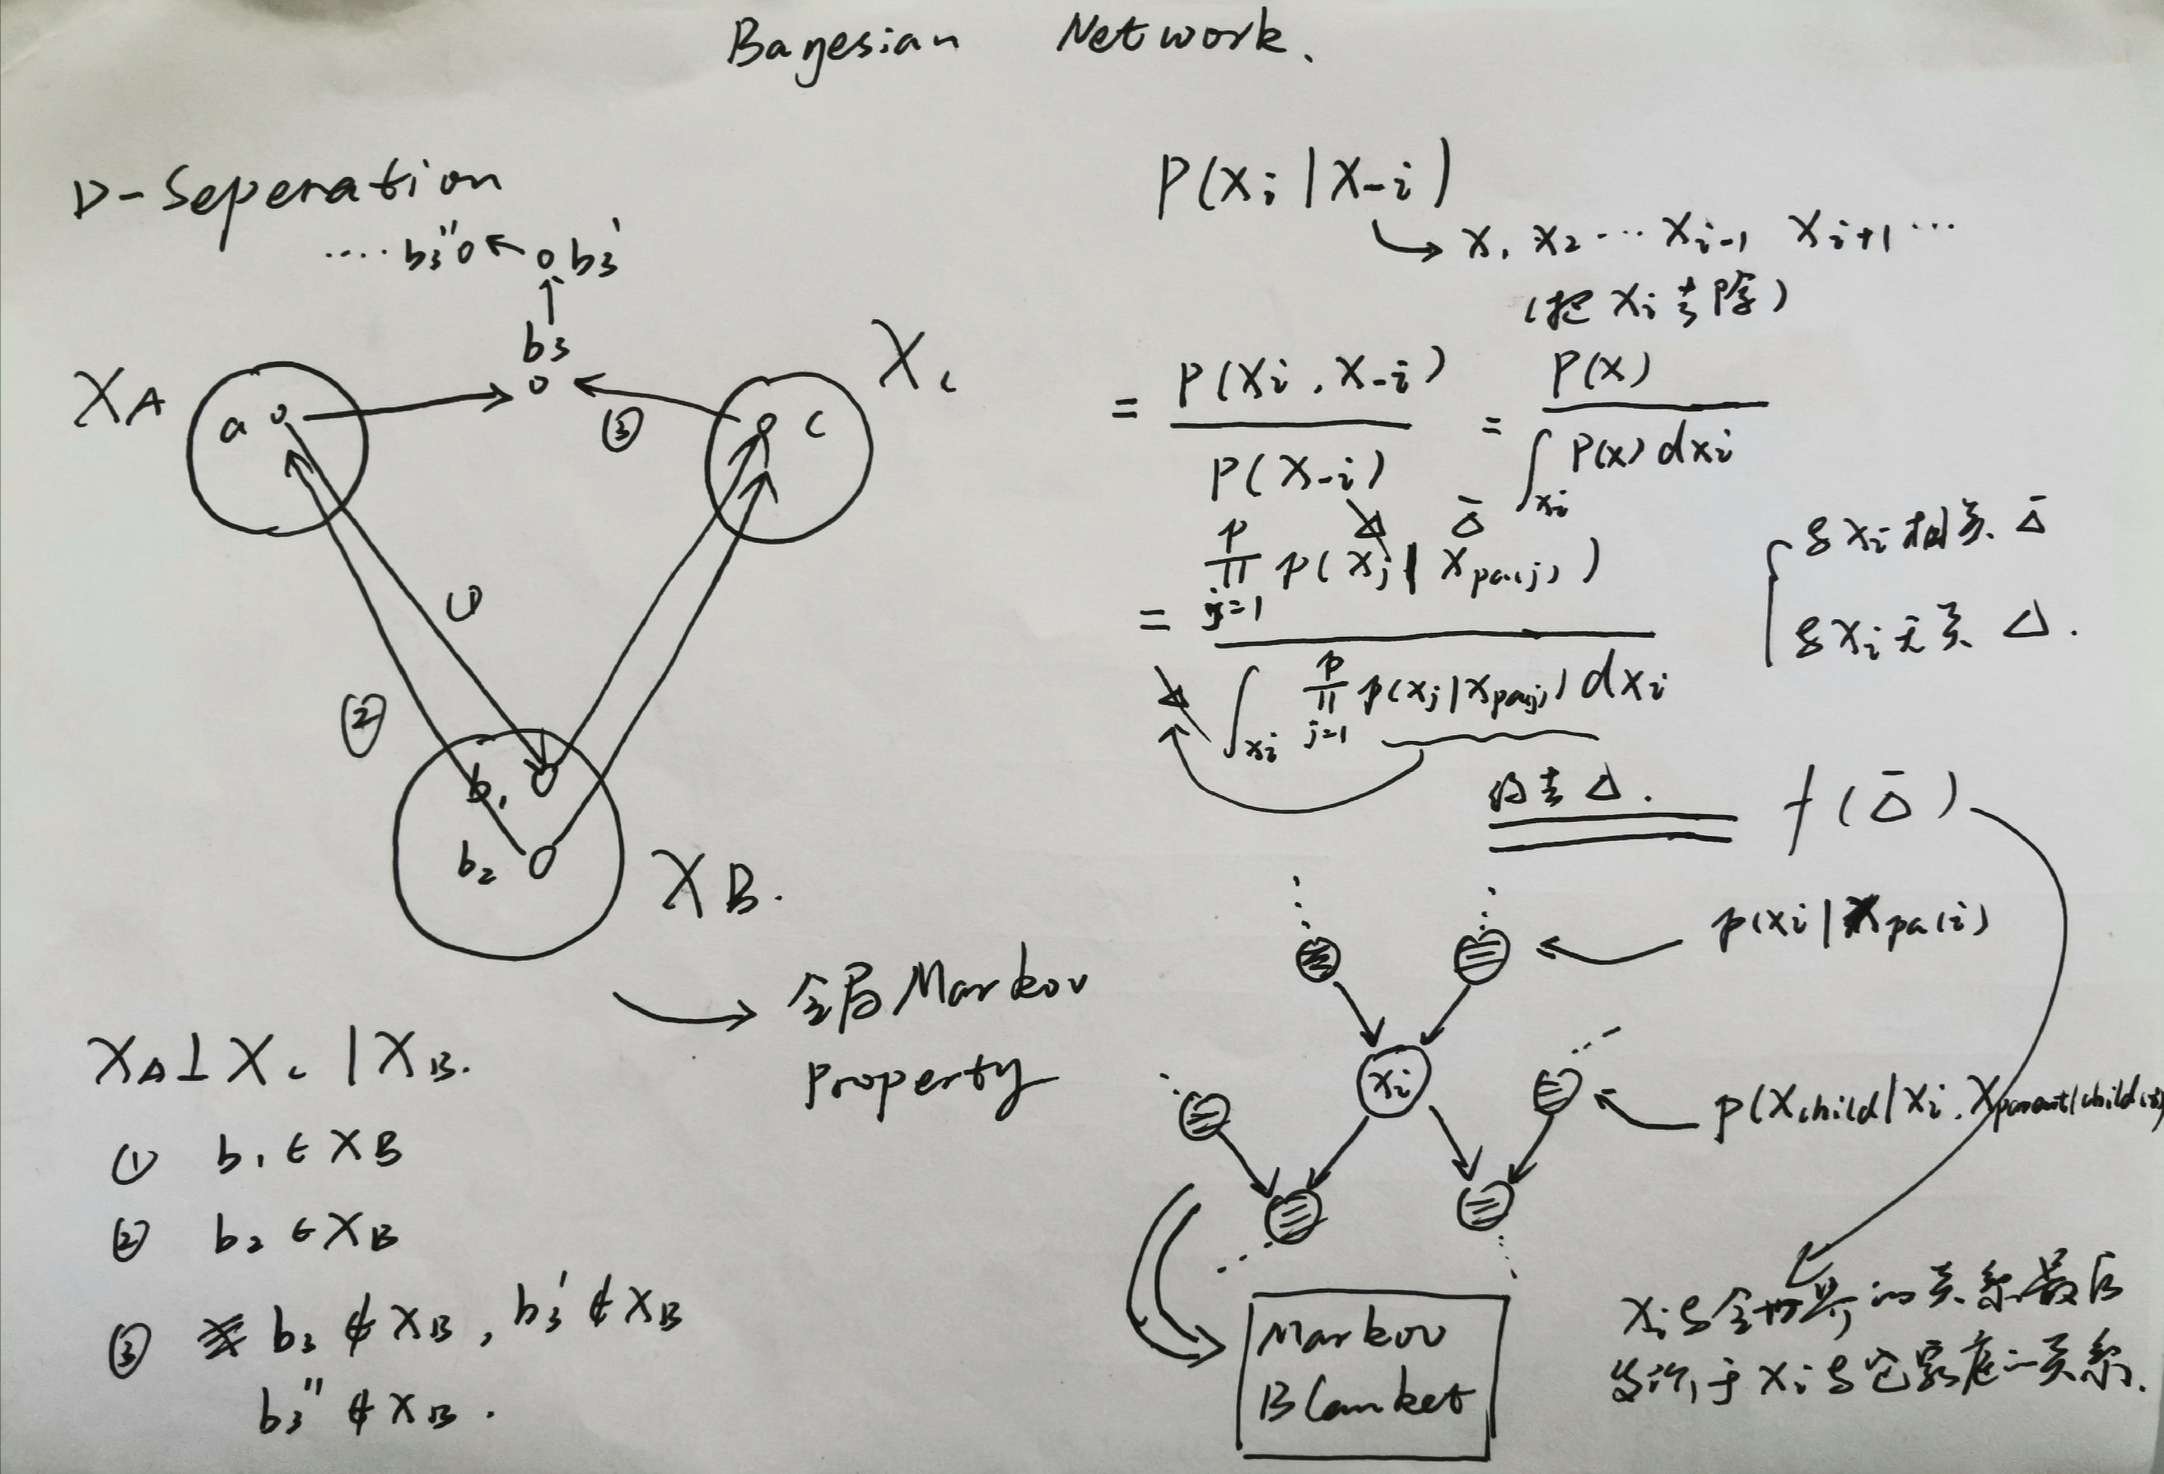 Bayesian Network.
D-Seperation
.... b3'' b3'
b3
XA
a
③
c
XC
①
②
b1
b2
XB.
全局 Markov
Property
XA ⊥ XC | XB.
① b1 ∈ XB
② b2 ∈ XB
③ b3 ∉ XB, b3' ∉ XB
b3'' ∉ XB.
P(xi | x-i)
x1 x2 ... xi-1 xi+1 ...
(把 xi 去除)
= P(xi, x-i) / P(x-i) = P(x) / ∫xi P(x) dxi
Δ Δ̄
= ∏j=1^p p(xj | xpa(j)) / ∫xi ∏j=1^p p(xj | xpa(j)) dxi
与 xi 相关 Δ̄
与 xi 无关 Δ.
Δ
约去 Δ. f(Δ̄)
p(xi | xpa(i))
xi
p(xchild | xi, xparent(child(i))
Markov
Blanket
xi 与全世界的关系最后
xi 与它家庭的关系.